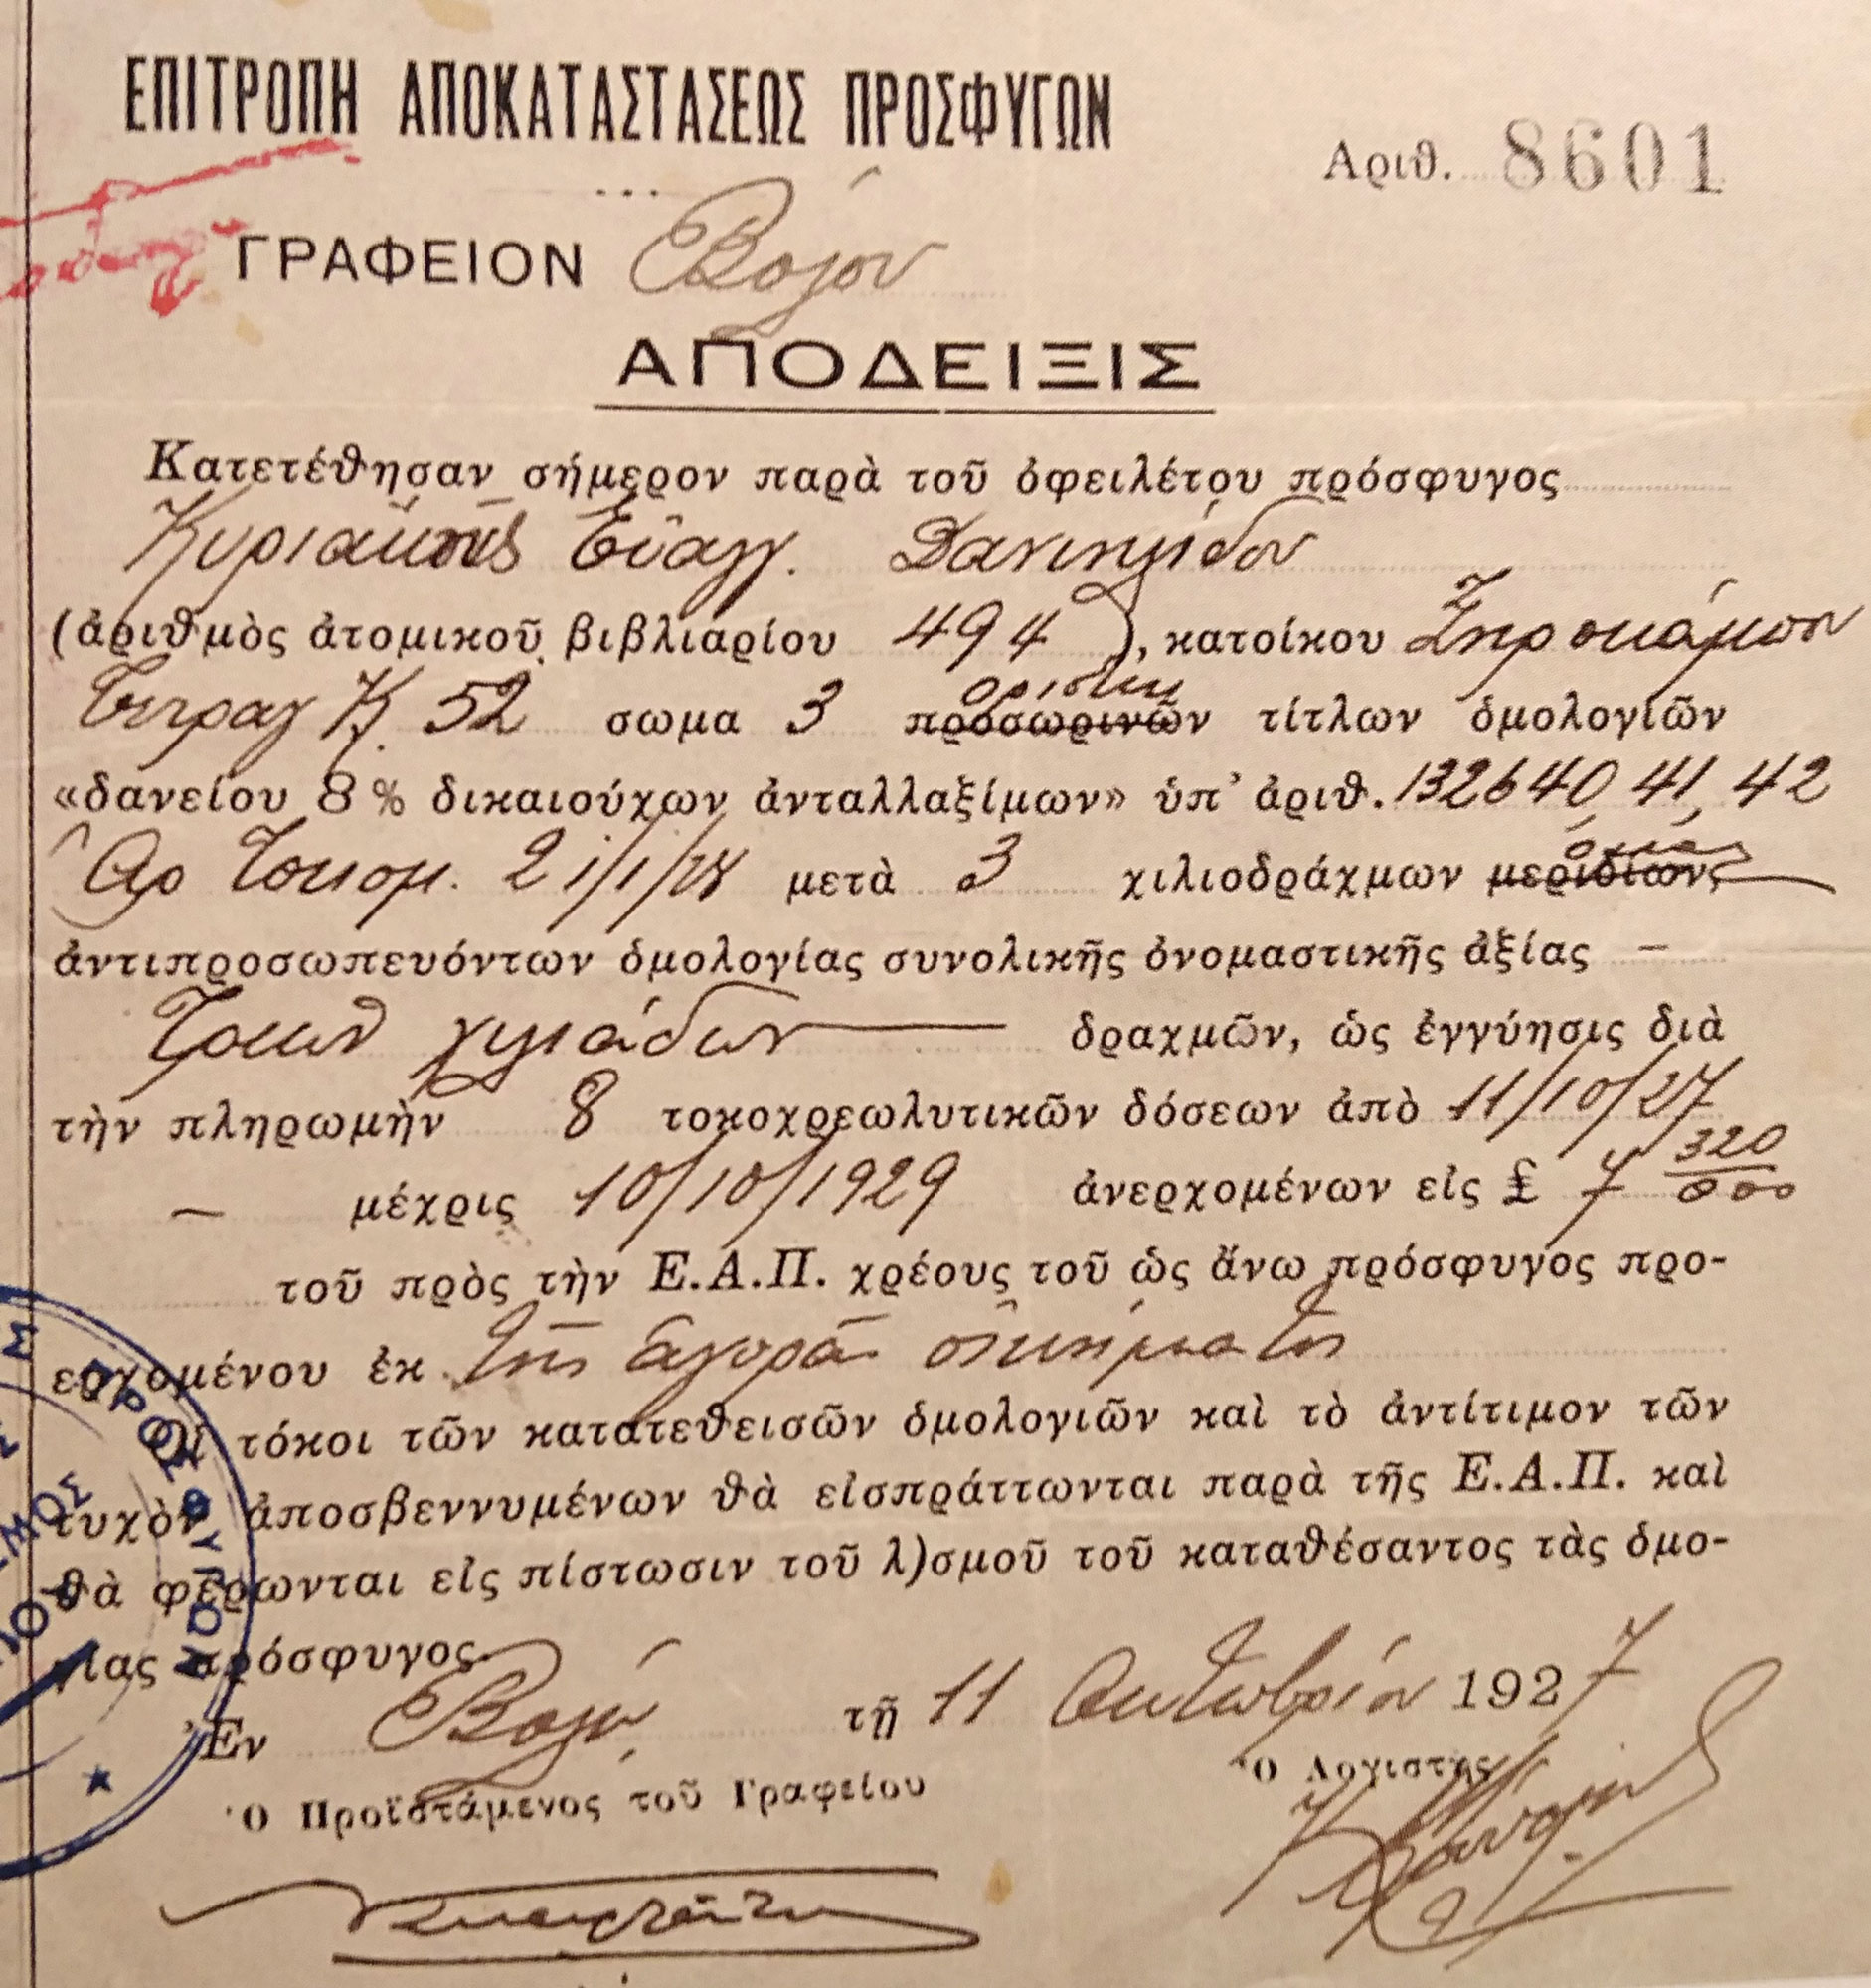 ΕΠΙΤΡΟΠΗ ΑΠΟΚΑΤΑΣΤΑΣΕΩΣ ΠΡΟΣΦΥΓΩΝ
Αριθ. 8601
ΓΡΑΦΕΙΟΝ Βόλου
ΑΠΟΔΕΙΞΙΣ
Κατετέθησαν σήμερον παρὰ τοῦ ὀφειλέτου πρόσφυγος
Κυριακῆς Εὐαγγ. Δανιηλίδου
(ἀριθμὸς ἀτομικοῦ βιβλιαρίου 494), κατοίκου Ξηροκάμπου
Τετραγ Κ. 52 σωμα 3 προσωρινῶν ὁριστικ τίτλων ὁμολογιῶν
«δανείου 8% δικαιούχων ἀνταλλαξίμων» ὑπ' ἀριθ. 132640, 41, 42
Αρ Τοκομ. 2 1/1/28 μετὰ 3 χιλιοδράχμων μεριδίων,
ἀντιπροσωπευόντων ὁμολογίας συνολικῆς ὀνομαστικῆς ἀξίας –
Τριῶν χιλιάδων δραχμῶν, ὡς ἐγγύησις διὰ
τὴν πληρωμὴν 8 τοκοχρεωλυτικῶν δόσεων ἀπὸ 11/10/27
– μέχρις 10/10/1929 ἀνερχομένων εἰς £ 7 320/000
τοῦ πρὸς τὴν Ε.Α.Π. χρέους τοῦ ὡς ἄνω πρόσφυγος προ-
ερχομένου ἐκ τῆς ἀγορᾶς οἰκήματος
Οἱ τόκοι τῶν κατατεθεισῶν ὁμολογιῶν καὶ τὸ ἀντίτιμον τῶν
τυχὸν ἀποσβεννυμένων θὰ εἰσπράττωνται παρὰ τῆς Ε.Α.Π. καὶ
θὰ φέρωνται εἰς πίστωσιν τοῦ λ)σμοῦ τοῦ καταθέσαντος τὰς ὁμο-
γίας πρόσφυγος.
Ἐν Βόλῳ τῇ 11 Οκτωβρίου 1927
Ὁ Προϊστάμενος τοῦ Γραφείου
Ὁ Λογιστὴς
ΠΡΟΣΦΥΓΩΝ